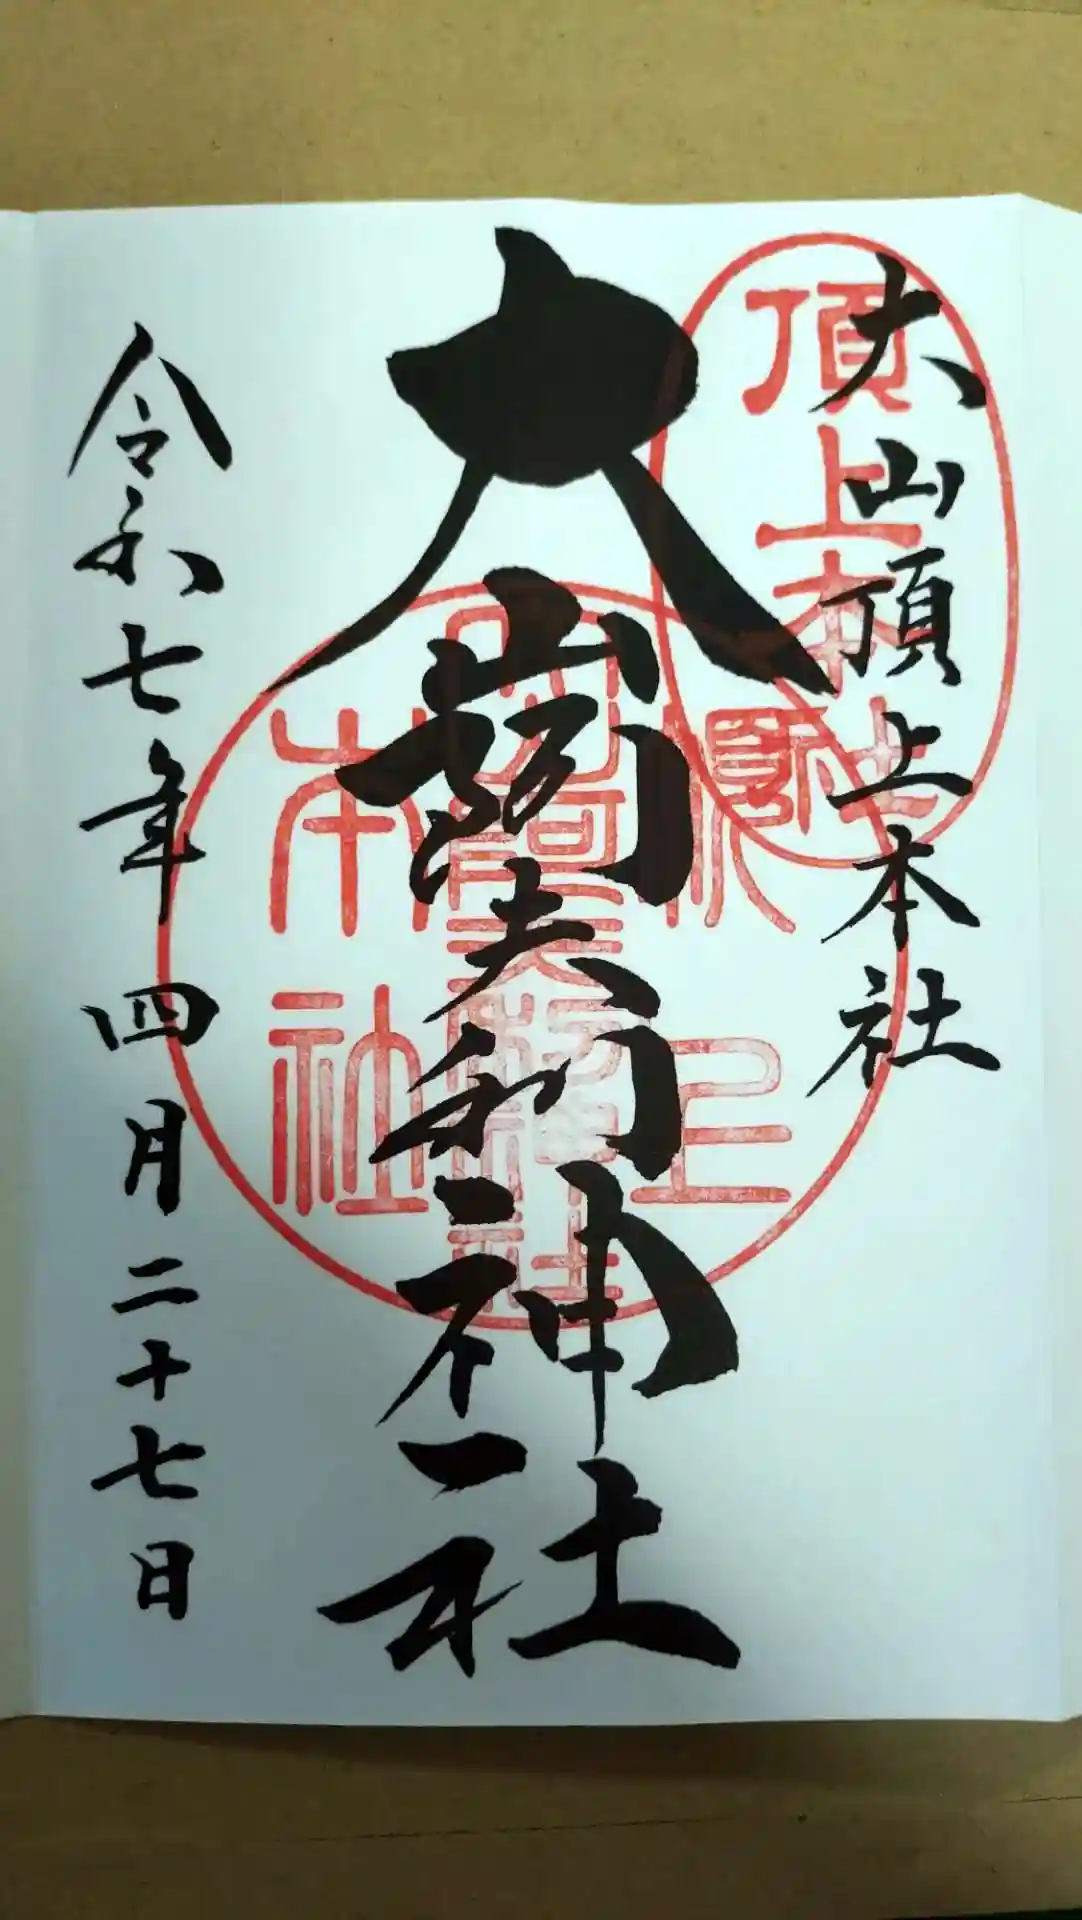 大山頂上本社
頂上本社
大山阿夫利神社
頂上
大山阿夫利神社
本社
令和七年四月二十七日